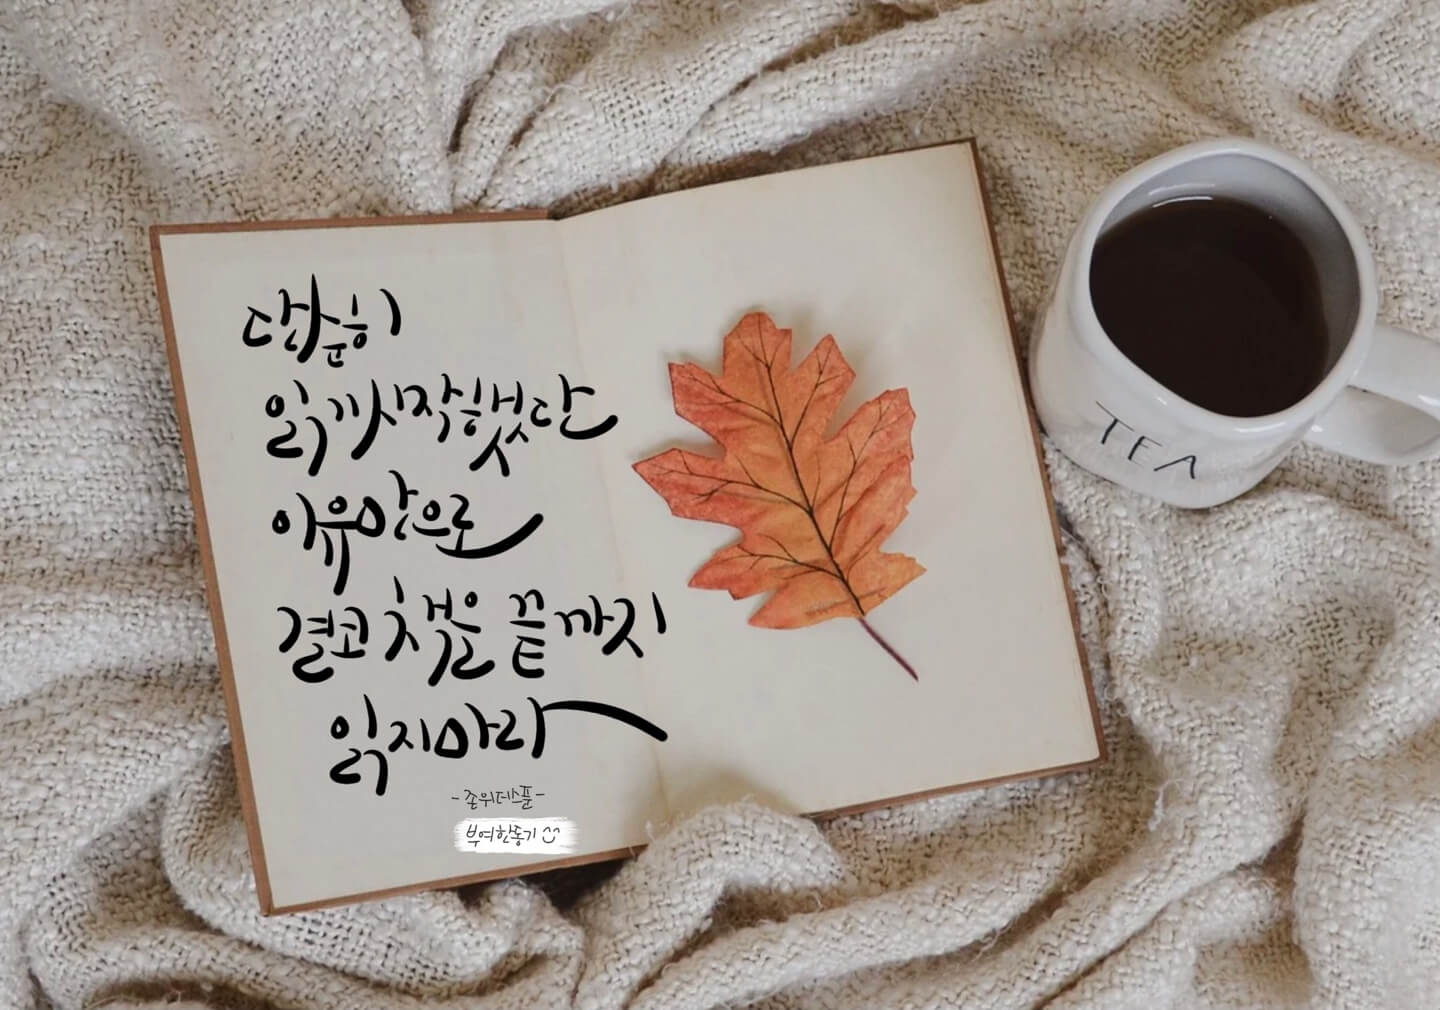 단순히
읽기 시작했단
이유만으로
결코 책을 끝까지
읽지마라
-존위데스푼-
부여한동기
TEA